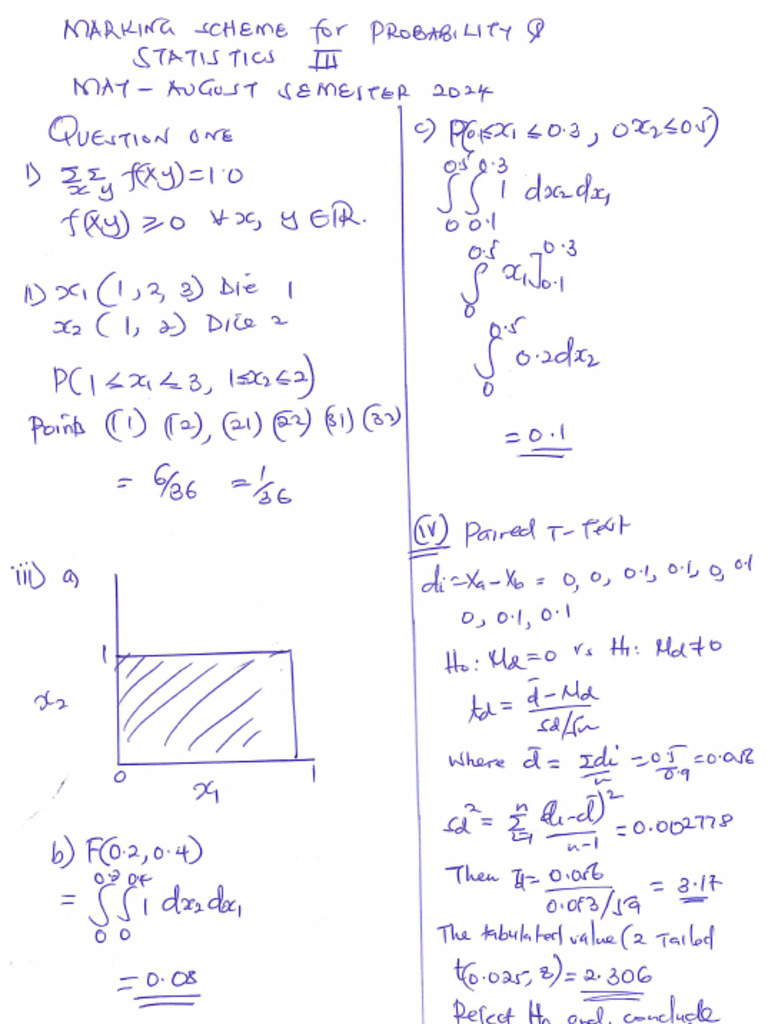 MARKING SCHEME for PROBABILITY &
STATISTICS III
MAT - AUGUST SEMESTER 2024
QUESTION ONE
i) ΣΣ f(xy) = 1.0
x y
f(xy) ≥ 0 ∀ x, y ∈ IR.
ii) x₁ (1, 2, 3) Die 1
x₂ (1, 2) Dice 2
P(1 ≤ x₁ ≤ 3, 1 ≤ x₂ ≤ 2)
Points (11) (12), (21) (22) (31) (32)
= 6/36 = 1/36
iii) a)
1
x₂
0 1
x₁
b) F(0.2, 0.4)
0.2 0.4
= ∫∫ 1 dx₂ dx₁
0 0
= 0.08
c) P(0.1 ≤ x₁ ≤ 0.3, 0 x₂ ≤ 0.5)
0.5 0.3
∫∫ 1 dx₂ dx₁
0 0.1
0.5 0.3
∫ x₁]
0 0.1
0.5
∫ 0.2dx₂
0
= 0.1
(iv) Paired T-Test
di = Xa - Xb = 0, 0, 0.1, 0.1, 0, 0.1
0, 0.1, 0.1
H₀: Md = 0 vs H₁: Md ≠ 0
td = d̄ - Md
sd/√n
Where d̄ = Σdi/n = 0.5/0.9 = 0.056
Sd² = Σ (di - d̄)²/n-1 = 0.002778
n
i=1
Then = 0.056
0.053/√9 = 3.17
The tabulated value (2 Tailed
t(0.025, 8) = 2.306
Reject H₀ and, conclude